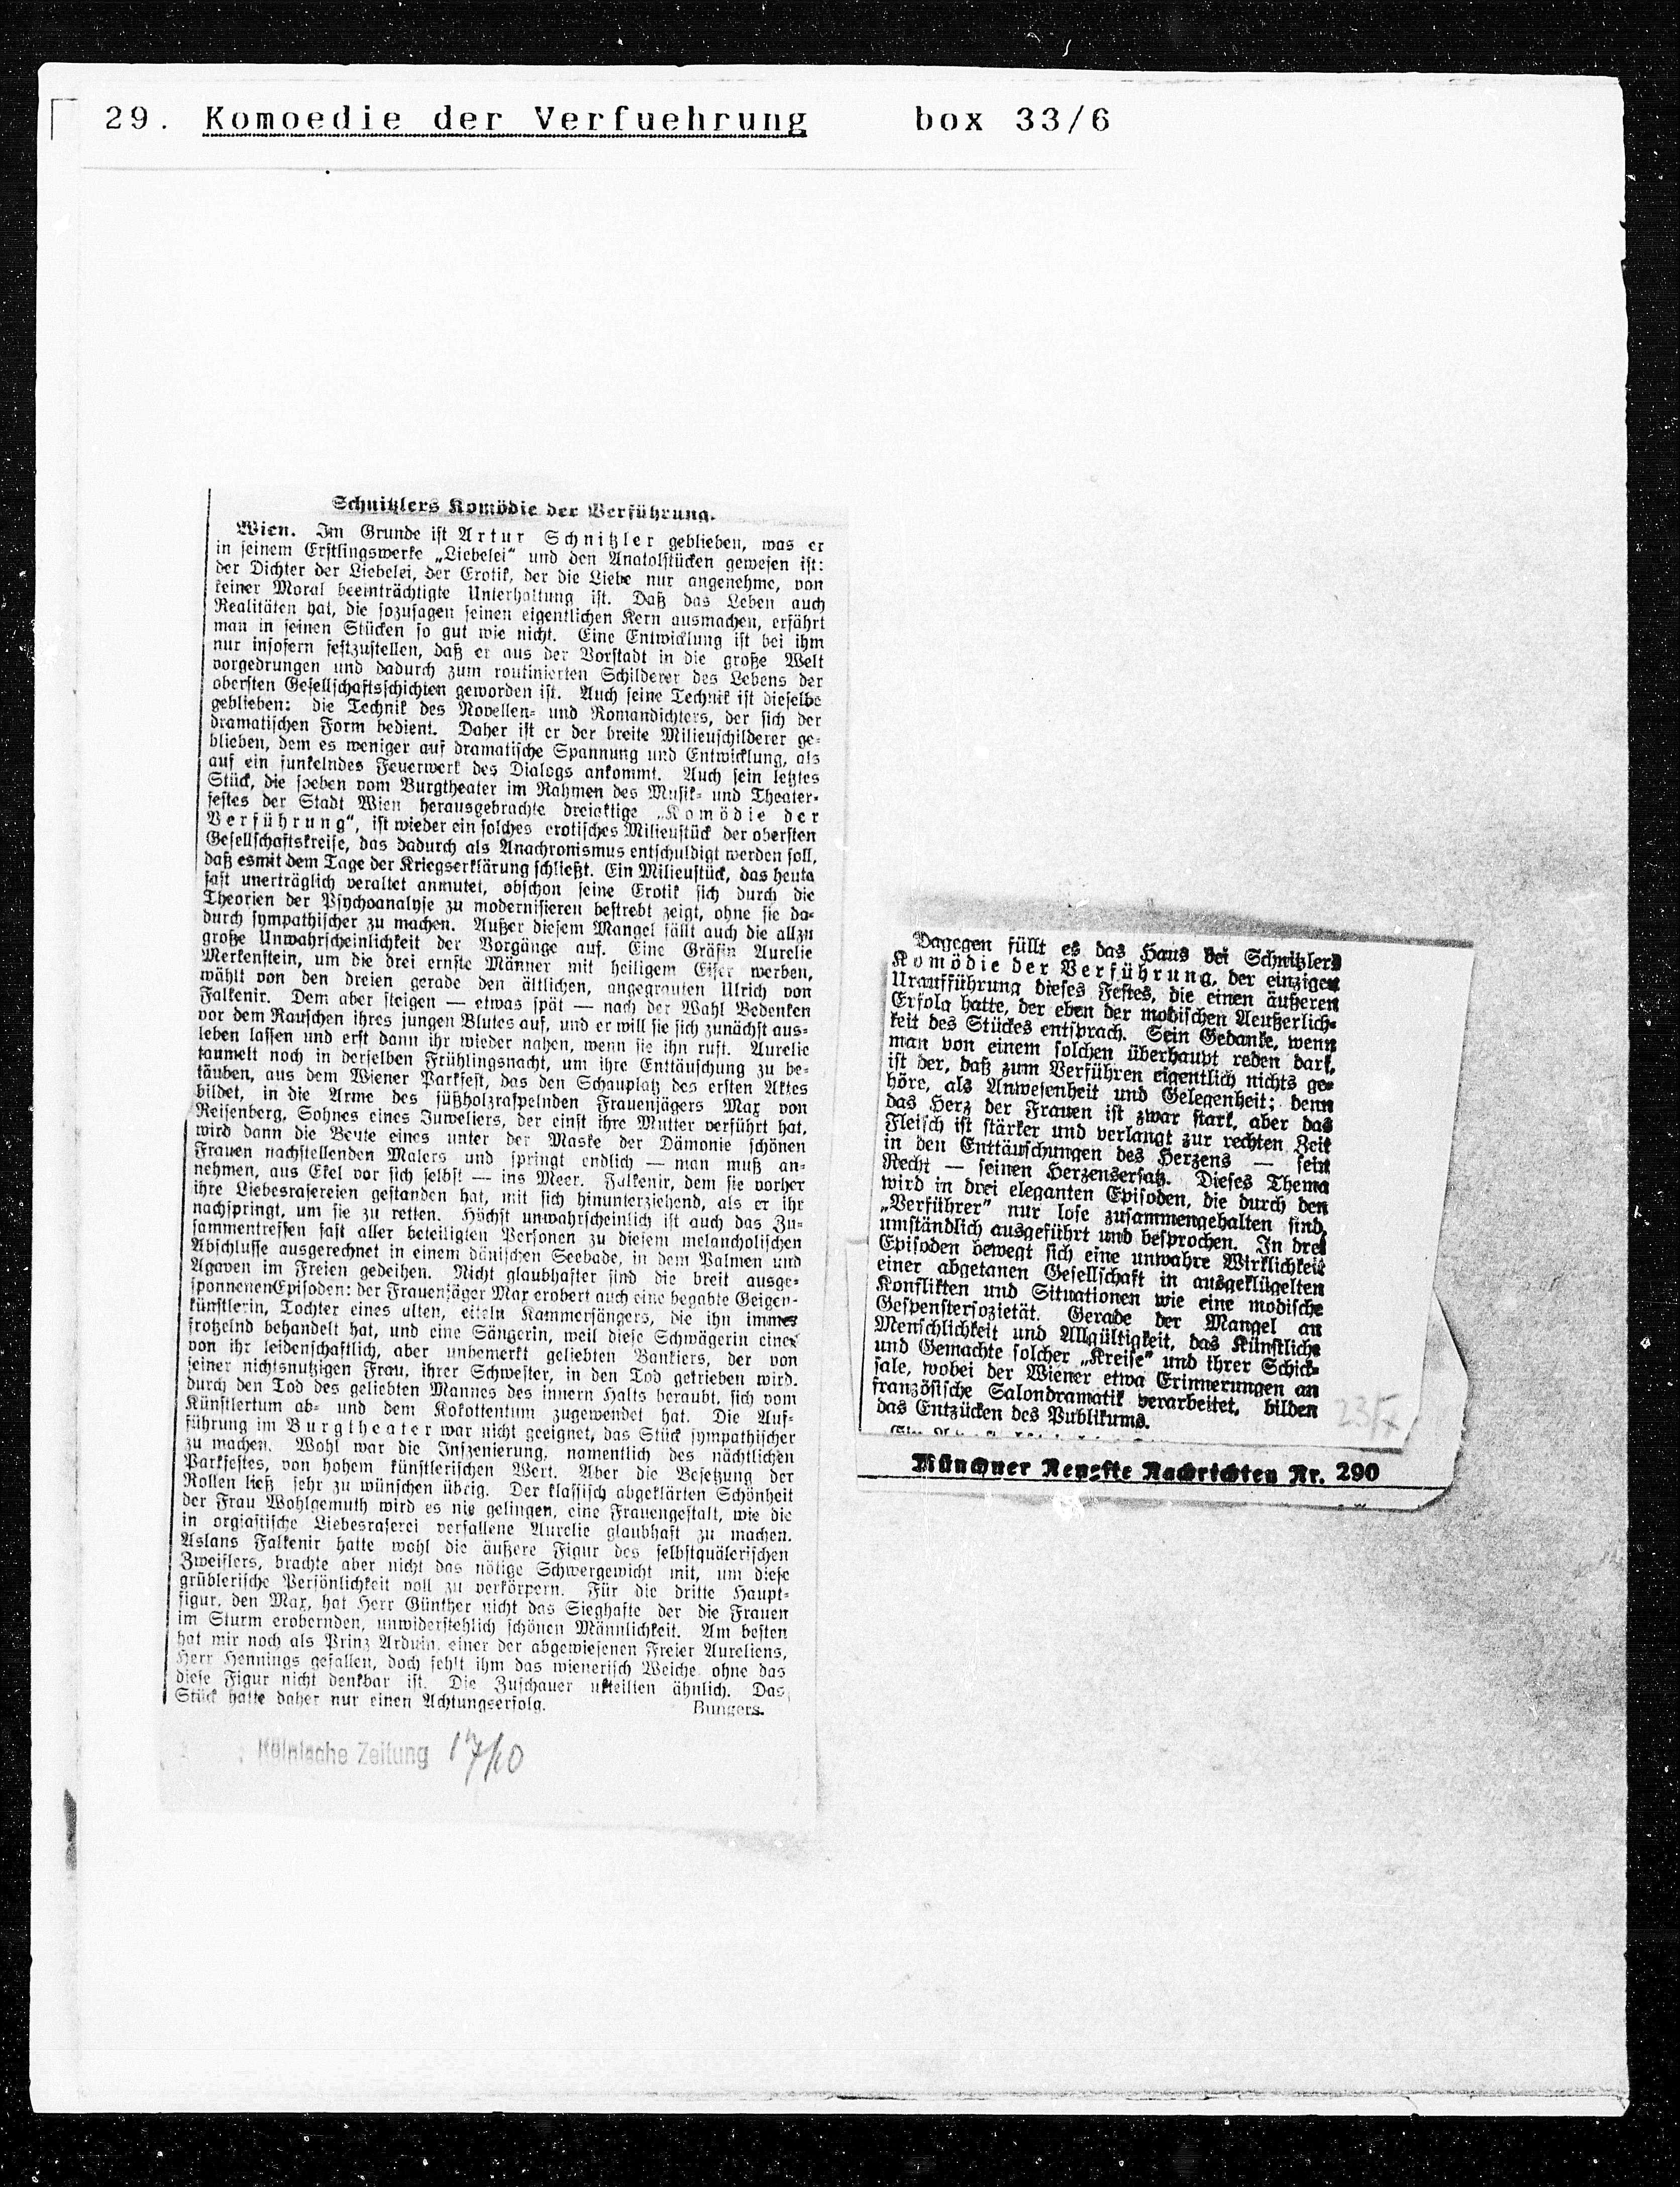 29. Komoedie der Verfuehrung box 33/6
Schnitzlers Komödie der Verführung.
Wien. Im Grunde ist Artur Schnitzler geblieben, was er
in seinem Erstlingswerke „Liebelei“ und den Anatolstücken gewesen ist:
der Dichter der Liebelei, der Erotik, der die Liebe nur angenehme, von
keiner Moral beeinträchtigte Unterhaltung ist. Daß das Leben auch
Realitäten hat, die sozusagen seinen eigentlichen Kern ausmachen, erfährt
man in seinen Stücken so gut wie nicht. Eine Entwicklung ist bei ihm
nur insofern festzustellen, daß er aus der Vorstadt in die große Welt
vorgedrungen und dadurch zum routinierten Schilderer des Lebens der
obersten Gesellschaftsschichten geworden ist. Auch seine Technik ist dieselbe
geblieben: die Technik des Novellen- und Romandichters, der sich der
dramatischen Form bedient. Daher ist er der breite Milieuschilderer ge-
blieben, dem es weniger auf dramatische Spannung und Entwicklung, als
auf ein funkelndes Feuerwerk des Dialogs ankommt. Auch sein letztes
Stück, die soeben vom Burgtheater im Rahmen des Musik- und Theater-
festes der Stadt Wien herausgebrachte dreiaktige „Komödie der
Verführung“, ist wieder ein solches erotisches Milieustück der obersten
Gesellschaftskreise, das dadurch als Anachronismus entschuldigt werden soll,
daß es mit dem Tage der Kriegserklärung schließt. Ein Milieustück, das heute
fast unerträglich veraltet anmutet, obschon seine Erotik sich durch die
Theorien der Psychoanalyse zu modernisieren bestrebt zeigt, ohne sie da-
durch sympathischer zu machen. Außer diesem Mangel fällt auch die allzu
große Unwahrscheinlichkeit der Vorgänge auf. Eine Gräfin Aurelie
Merkenstein, um die drei ernste Männer mit heiligem Eifer werben,
wählt von den dreien gerade den ältlichen, angegrauten Ulrich von
Falkenir. Dem aber steigen — etwas spät — nach der Wahl Bedenken
vor dem Rauschen ihres jungen Blutes auf, und er will sie sich zunächst aus-
leben lassen und erst dann ihr wieder nahen, wenn sie ihn ruft. Aurelie
taumelt noch in derselben Frühlingsnacht, um ihre Enttäuschung zu be-
täuben, aus dem Wiener Parkfest, das den Schauplatz des ersten Aktes
bildet, in die Arme des süßholzraspelnden Frauenjägers Max von
Reisenberg, Sohnes eines Juweliers, der einst ihre Mutter verführt hat,
wird dann die Beute eines unter der Maske der Dämonie schönen
Frauen nachstellenden Malers und springt endlich — man muß an-
nehmen, aus Ekel vor sich selbst — ins Meer. Falkenir, dem sie vorher
ihre Liebesrasereien gestanden hat, mit sich hinunterziehend, als er ihr
nachspringt, um sie zu retten. Höchst unwahrscheinlich ist auch das Zu-
sammentreffen fast aller beteiligten Personen zu diesem melancholischen
Abschlusse ausgerechnet in einem dänischen Seebade, in dem Palmen und
Agaven im Freien gedeihen. Nicht glaubhafter sind die breit ausge-
sponnenen Episoden: der Frauenjäger Max erobert auch eine begabte Geigen-
künstlerin, Tochter eines alten, eiteln Kammersängers, die ihn immer
frotzelnd behandelt hat, und eine Sängerin, weil diese Schwägerin eines
von ihr leidenschaftlich, aber unbemerkt geliebten Bankiers, der von
seiner nichtsnutzigen Frau, ihrer Schwester, in den Tod getrieben wird.
durch den Tod des geliebten Mannes des innern Halts beraubt, sich vom
Künstlertum ab- und dem Kokottentum zugewendet hat. Die Auf-
führung im Burgtheater war nicht geeignet, das Stück sympathischer
zu machen. Wohl war die Inszenierung, namentlich des nächtlichen
Parkfestes, von hohem künstlerischen Wert. Aber die Besetzung der
Rollen ließ sehr zu wünschen übrig. Der klassisch abgeklärten Schönheit
der Frau Wohlgemuth wird es nie gelingen, eine Frauengestalt, wie die
in orgiastische Liebesraserei verfallene Aurelie glaubhaft zu machen.
Aslans Falkenir hatte wohl die äußere Figur des selbstquälerischen
Zweiflers, brachte aber nicht das nötige Schwergewicht mit, um diese
grüblerische Persönlichkeit voll zu verkörpern. Für die dritte Haupt-
figur, den Max, hat Herr Günther nicht das Sieghafte der die Frauen
im Sturm erobernden, unwiderstehlich schönen Männlichkeit. Am besten
hat mir noch als Prinz Arduin, einer der abgewiesenen Freier Aureliens,
Herr Hennings gefallen, doch fehlt ihm das wienerisch Weiche, ohne das
diese Figur nicht denkbar ist. Die Zuschauer urteilten ähnlich. Das
Stück hatte daher nur einen Achtungserfolg. Bungers.
Kölnische Zeitung 17/10
Dagegen füllt es das Haus bei Schnitzlers
Komödie der Verführung, der einzigen
Uraufführung dieses Festes, die einen äußeren
Erfolg hatte, der eben der modischen Aeußerlich-
keit des Stückes entsprach. Sein Gedanke, wenn
man von einem solchen überhaupt reden darf,
ist der, daß zum Verführen eigentlich nichts ge-
höre, als Anwesenheit und Gelegenheit; denn
das Herz der Frauen ist zwar stark, aber das
Fleisch ist stärker und verlangt zur rechten Zeit
in den Enttäuschungen des Herzens — sein
Recht — seinen Herzensersatz. Dieses Thema
wird in drei eleganten Episoden, die durch den
„Verführer“ nur lose zusammengehalten sind,
umständlich ausgeführt und besprochen. In drei
Episoden bewegt sich eine unwahre Wirklichkeit
einer abgetanen Gesellschaft in ausgeklügelten
Konflikten und Situationen wie eine modische
Gespenstersozietät. Gerade der Mangel an
Menschlichkeit und Allgültigkeit, das Künstliche
und Gemachte solcher „Kreise“ und ihrer Schick-
sale, wobei der Wiener etwa Erinnerungen an
französische Salondramatik verarbeitet, bilden
das Entzücken des Publikums.
23/X
Münchner Neueste Nachrichten Nr. 290